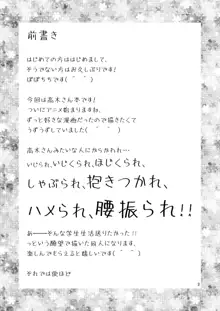 前書き
はじめての方ははじめまして、
そうでない方はお久しぶりです!
ぽぽちちです(＾ ＾)
今回は高木さん本です!
ついにアニメ始まりますね。
ずっと好きな漫画だったので描きたくて
うずうずしていました(＾ ＾)
高木さんみたいな人にからかわれ…
いじられ、いじくられ、ほじくられ、
しゃぶられ、抱きつかれ、
ハメられ、腰振られ!!
あーーそんな学生生活送りたかった!!
っという願望で描いた同人になります。
楽しんでもらえると嬉しいです(＾ ＾)
それでは後ほど